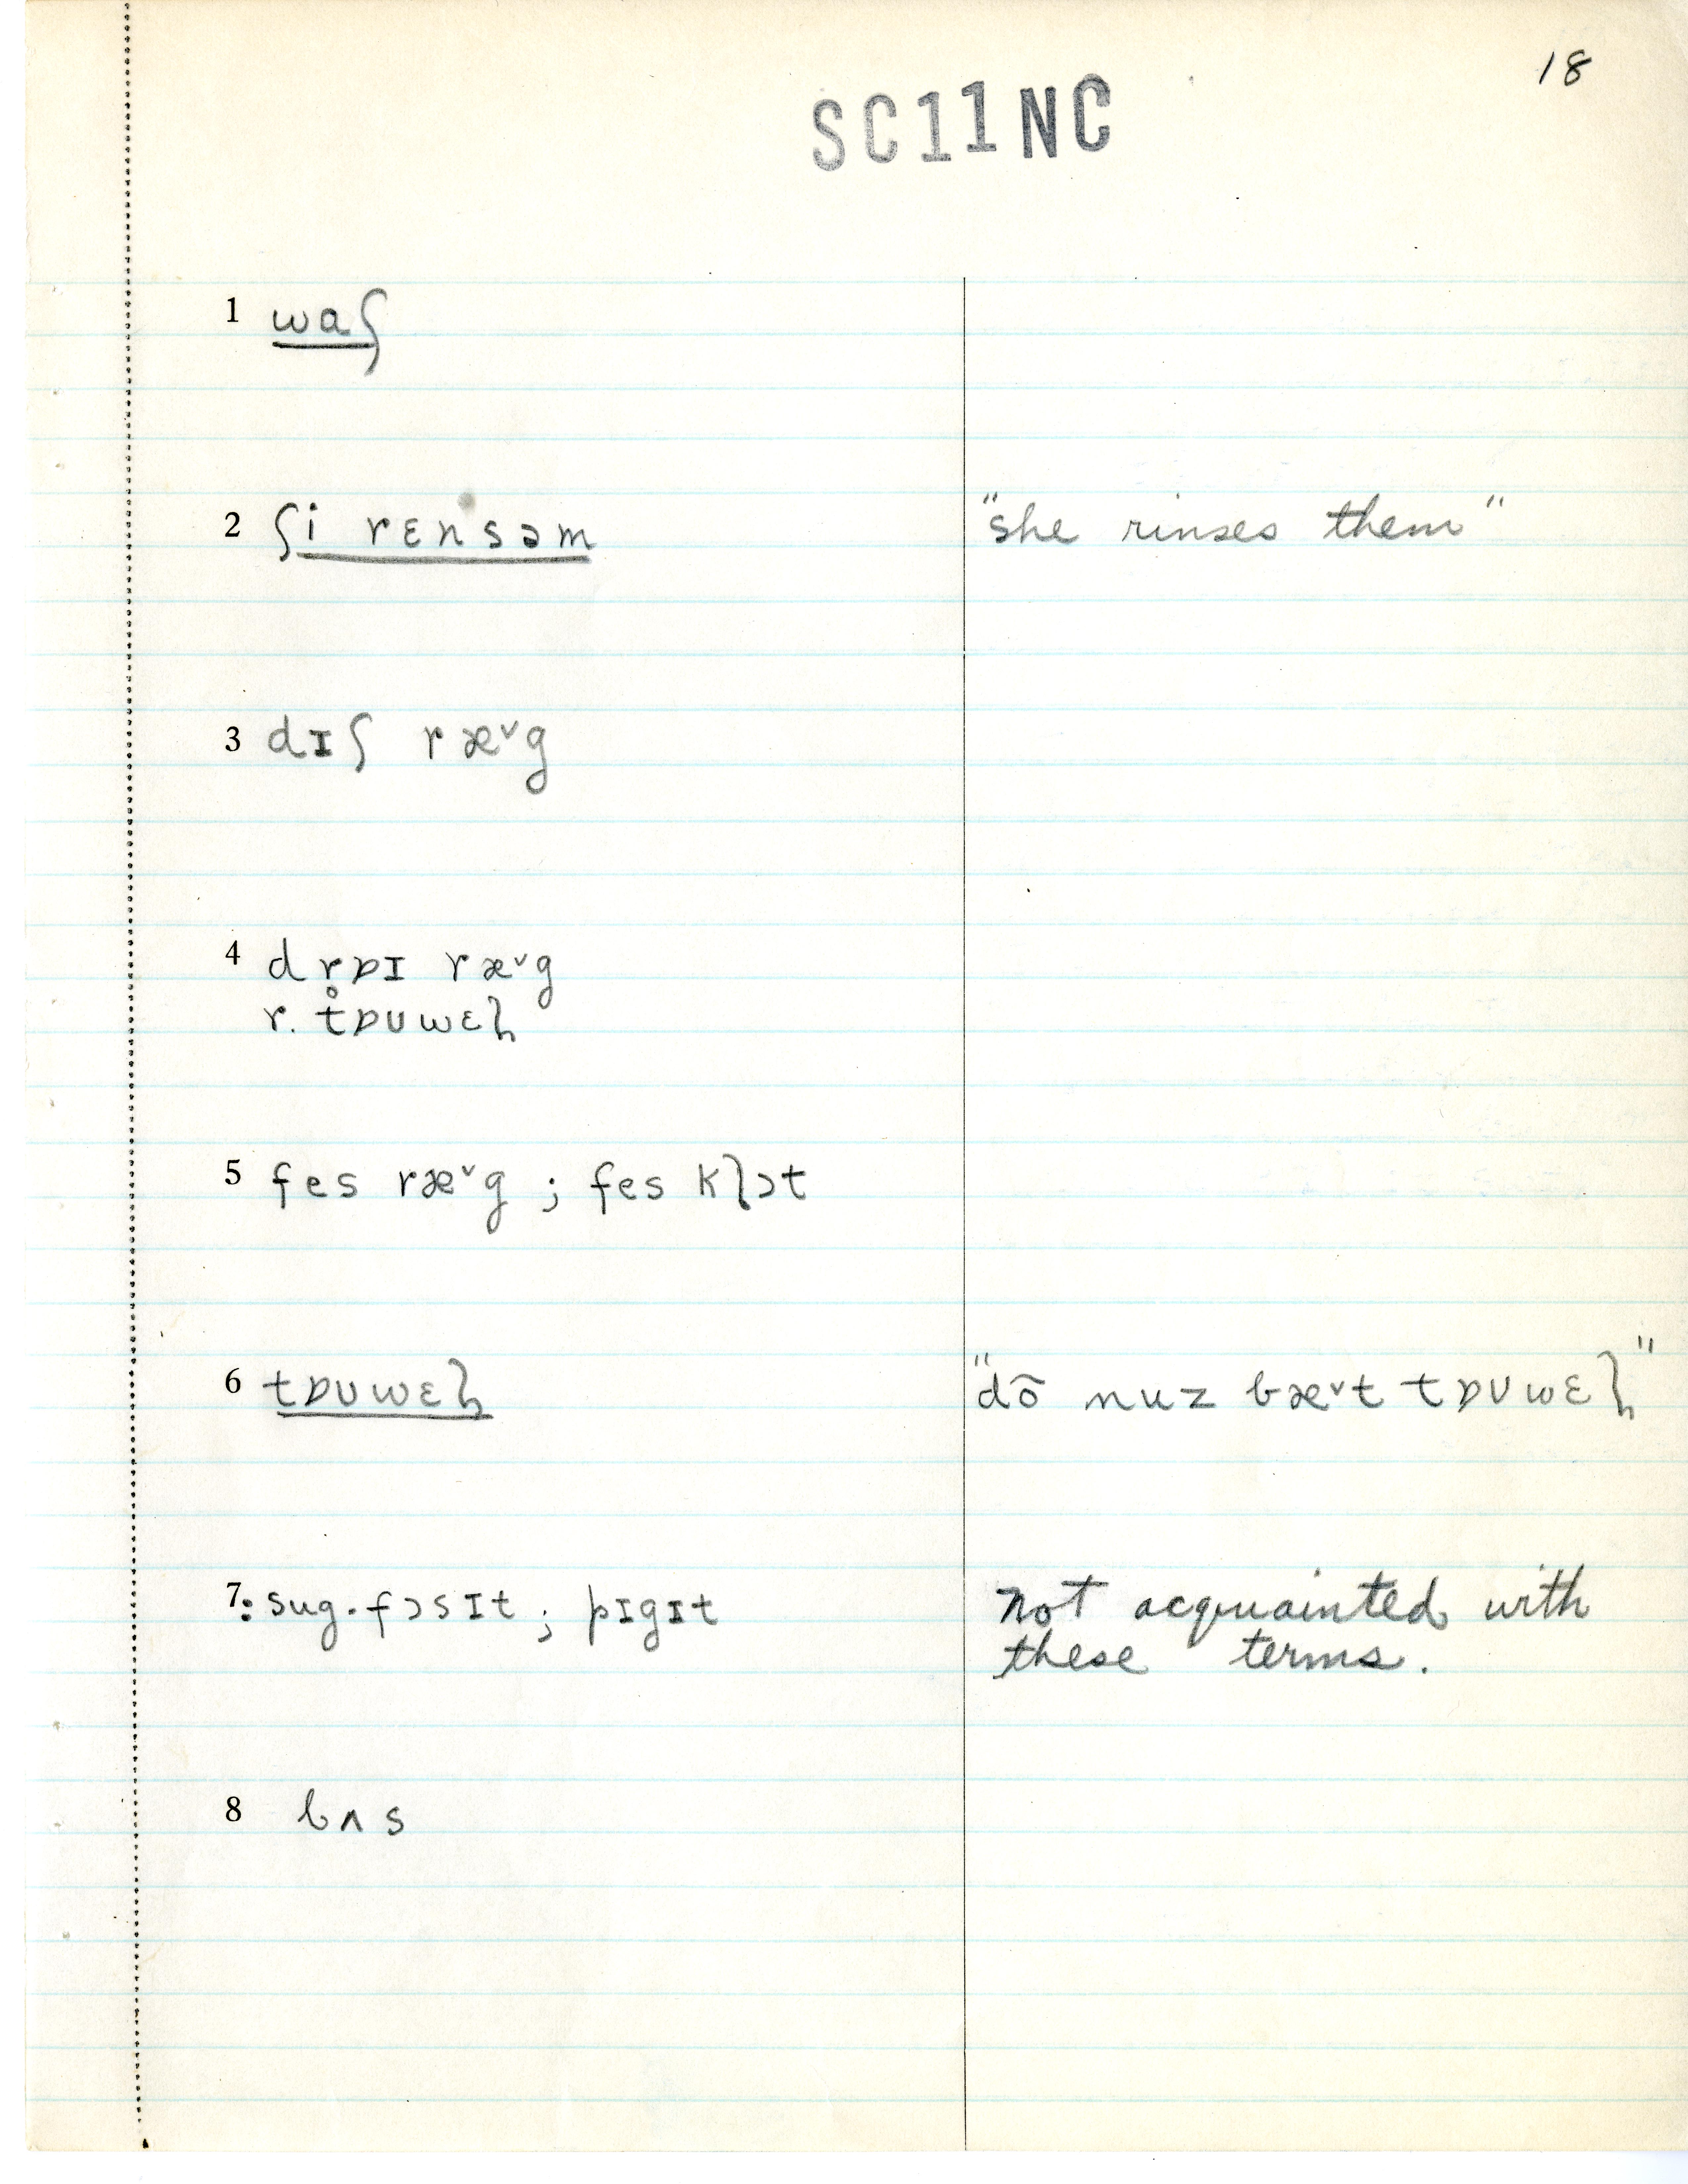 18
SC11NC
1 waʃ
2 ʃi rɛnsəm "she rinses them"
3 dɪʃ ræ˅g
4 dr̥ɒɪ ræ˅g
r. tɒʊwɛɫ
5 fes ræ˅g ; fes kɫɔt
6 tɒʊwɛɫ "dõ nuz bæ˅t tɒʊwɛɫ"
7: sug·fɔsɪt ; pɪgɪt not acquainted with
these terms.
8 bʌs